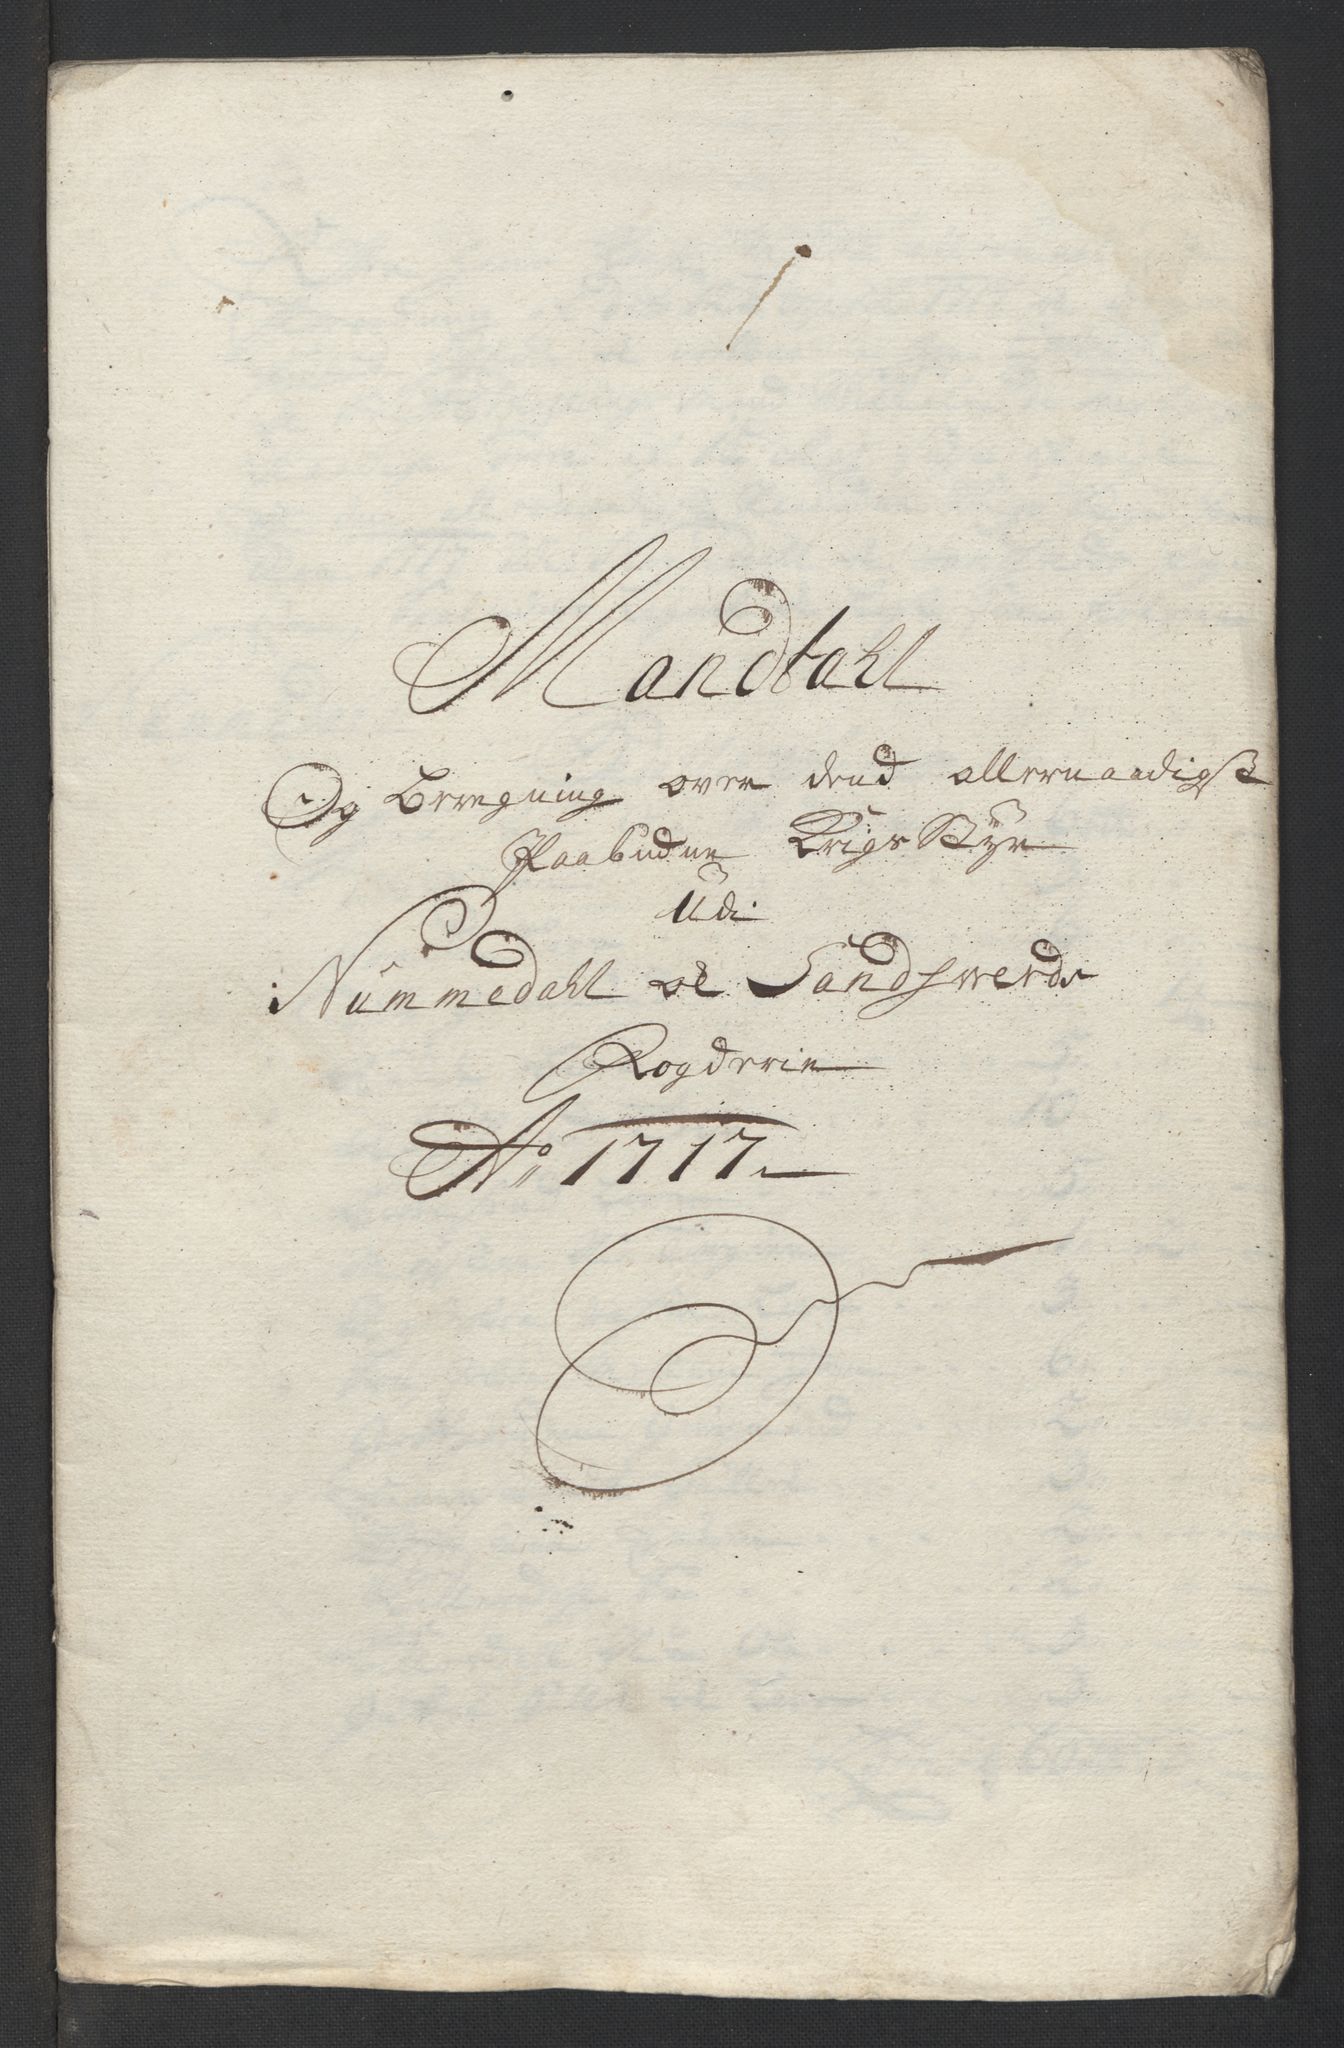 Mandtahl
Og Beregning over dend allernaadigst
Paabudne Krigs Styr
Udi
Nummedahl oc Sandswerds
Fogderie
Ao 1717